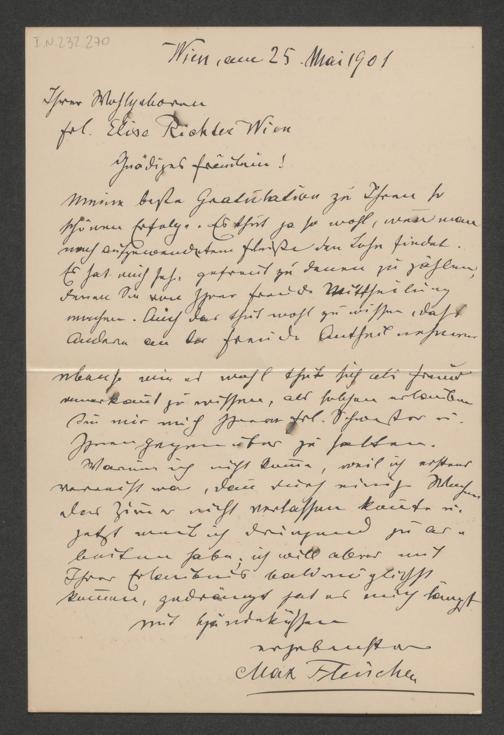 I.N. 232.270
Wien, am 25. Mai 1901
Ihrer Wohlgeboren
Frl. Elise Richter Wien
Gnädiges Fräulein!
Meine beste Gratulation zu Ihrem so
schönen Erfolge. Es thut ja so wohl, wenn man
nach aufgewendetem Fleiße den Lohn findet.
Es hat mich sehr gefreut zu denen zu zählen,
denen Sie von Ihrer Freude Mittheilung
machen. Auch das thut wohl zu wissen, daß
andere an der Freude Antheil nehmen
ebenso wie es wohl thut sich als Freund
anerkannt zu wissen, als solchen erlauben
Sie mir mich Ihrer Frl. Schwester u.
Ihnen gegenüber zu halten.
Warum ich nicht komme, weil ich erstens
verreist war, dann durch einige Wochen
das Zimmer nicht verlassen konnte u.
jetzt weil ich dringend zu ar-
beiten habe, ich will aber mit
Ihrer Erlaubnis baldmöglichst
kommen, gedrängt hat es mich längst
mit Handküssen
ergebenster
Max Fleischer